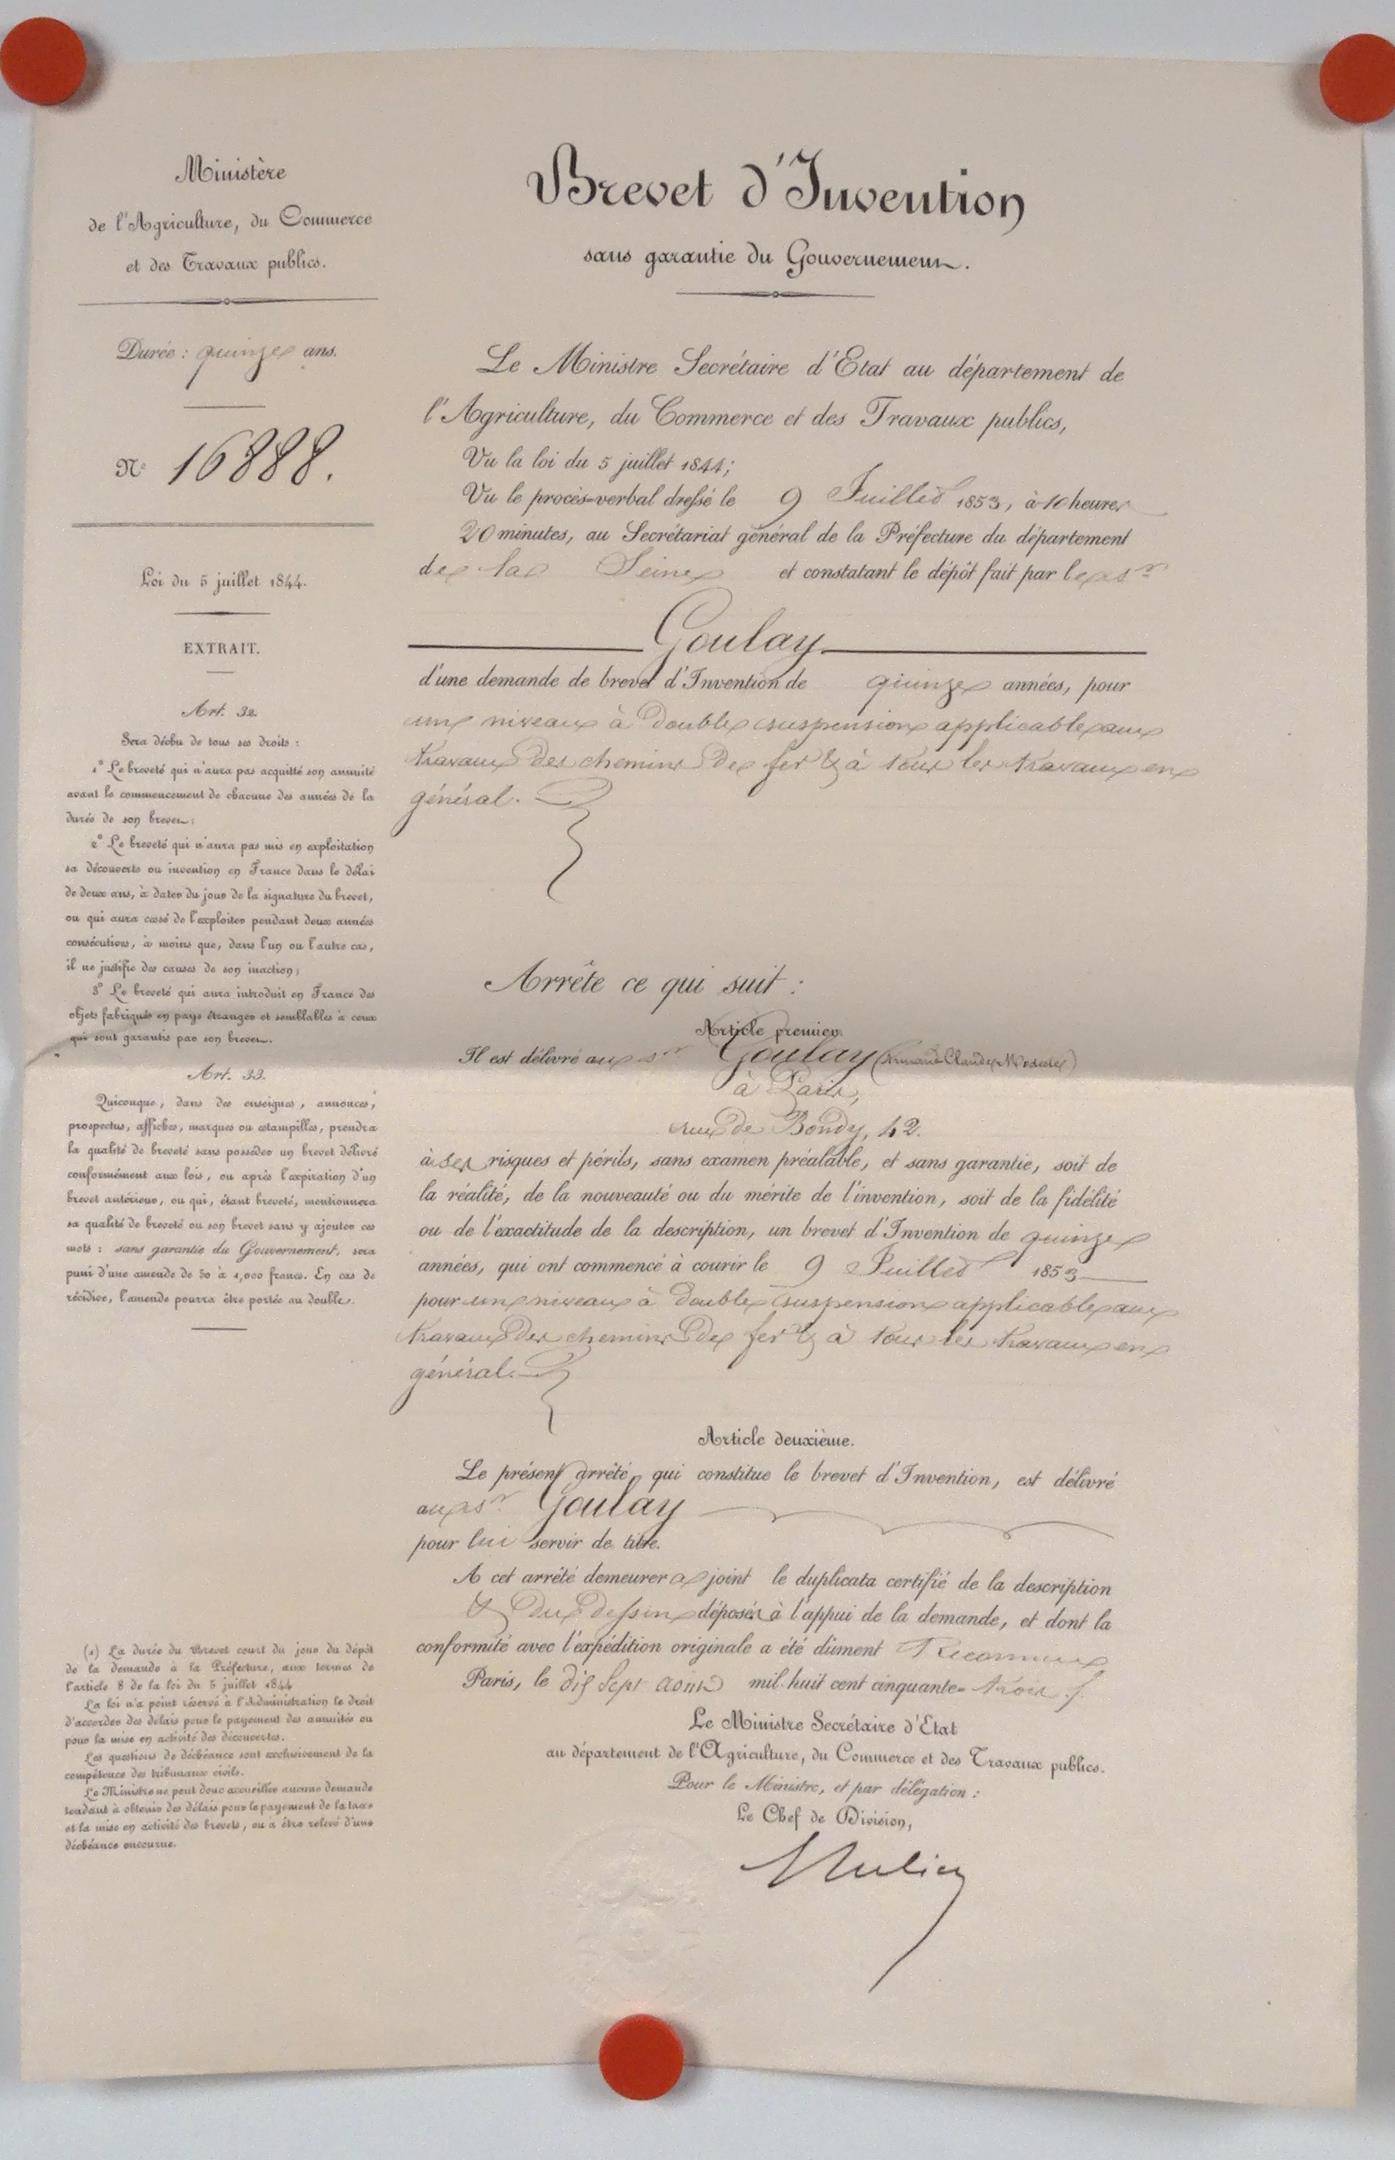 Ministère
de l'Agriculture, du Commerce
et des Travaux publics.
Durée : quinze ans.
N° 16888.
Loi du 5 juillet 1844.
EXTRAIT.
Art. 32.
Sera déchu de tous ses droits :
1° Le breveté qui n'aura pas acquitté son annuité
avant le commencement de chacune des années de la
durée de son brevet ;
2° Le breveté qui n'aura pas mis en exploitation
sa découverte ou invention en France dans le délai
de deux ans, à dater du jour de la signature du brevet,
ou qui aura cessé de l'exploiter pendant deux années
consécutives, à moins que, dans l'un ou l'autre cas,
il ne justifie des causes de son inaction ;
3° Le breveté qui aura introduit en France des
objets fabriqués en pays étranger et semblables à ceux
qui sont garantis par son brevet.
Art. 33.
Quiconque, dans des enseignes, annonces,
prospectus, affiches, marques ou estampilles, prendra
la qualité de breveté sans posséder un brevet délivré
conformément aux lois, ou après l'expiration d'un
brevet antérieur, ou qui, étant breveté, mentionnera
sa qualité de breveté ou son brevet sans y ajouter ces
mots : sans garantie du Gouvernement, sera
puni d'une amende de 50 à 1,000 francs. En cas de
récidive, l'amende pourra être portée au double.
(1) La durée du Brevet court du jour du dépôt
de la demande à la Préfecture, aux termes de
l'article 8 de la loi du 5 juillet 1844
La loi n'a point réservé à l'Administration le droit
d'accorder des délais pour le payement des annuités ou
pour la mise en activité des découvertes.
Les questions de déchéance sont exclusivement de la
compétence des tribunaux civils.
Le Ministre ne peut donc accueillir aucune demande
tendant à obtenir des délais pour le payement de la taxe
et la mise en activité des brevets, ou à être relevé d'une
déchéance encourue.
Brevet d'Invention
sans garantie du Gouvernement.
Le Ministre Secrétaire d'Etat au département de
l'Agriculture, du Commerce et des Travaux publics,
Vu la loi du 5 juillet 1844 ;
Vu le procès-verbal dressé le 9 Juillet 1853, à 10 heures
20 minutes, au Secrétariat général de la Préfecture du département
de la Seine et constatant le dépôt fait par le sr
Goulay
d'une demande de brevet d'Invention de quinze années, pour
un niveau à double suspension applicable aux
travaux des chemins de fer & à tous les travaux en
général.
Arrête ce qui suit :
Article premier.
Il est délivré au sr Goulay (Armand Claude Modeste)
à Paris,
rue de Bondy, 42.
à ses risques et périls, sans examen préalable, et sans garantie, soit de
la réalité, de la nouveauté ou du mérite de l'invention, soit de la fidélité
ou de l'exactitude de la description, un brevet d'Invention de quinze
années, qui ont commencé à courir le 9 Juillet 1853
pour un niveau à double suspension applicable aux
travaux des chemins de fer & à tous les travaux en
général.
Article deuxième.
Le présent arrêté, qui constitue le brevet d'Invention, est délivré
au sr Goulay
pour lui servir de titre.
A cet arrêté demeurera joint le duplicata certifié de la description
& du dessin déposés à l'appui de la demande, et dont la
conformité avec l'expédition originale a été dûment Reconnue
Paris, le dix sept août mil huit cent cinquante-trois
Le Ministre Secrétaire d'Etat
au département de l'Agriculture, du Commerce et des Travaux publics.
Pour le Ministre, et par délégation :
Le Chef de Division,